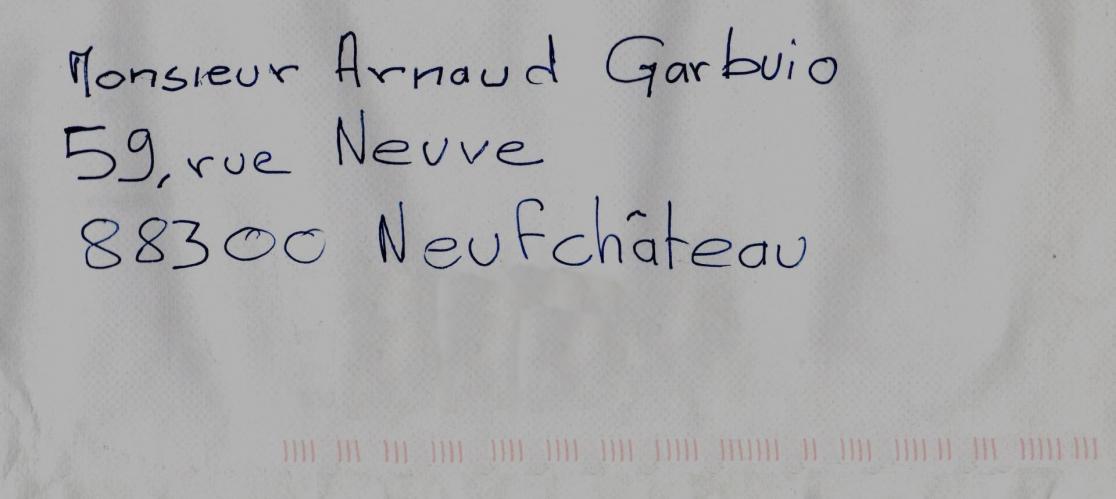 Monsieur Arnaud Garbuio
59, rue Neuve
88300 Neufchâteau